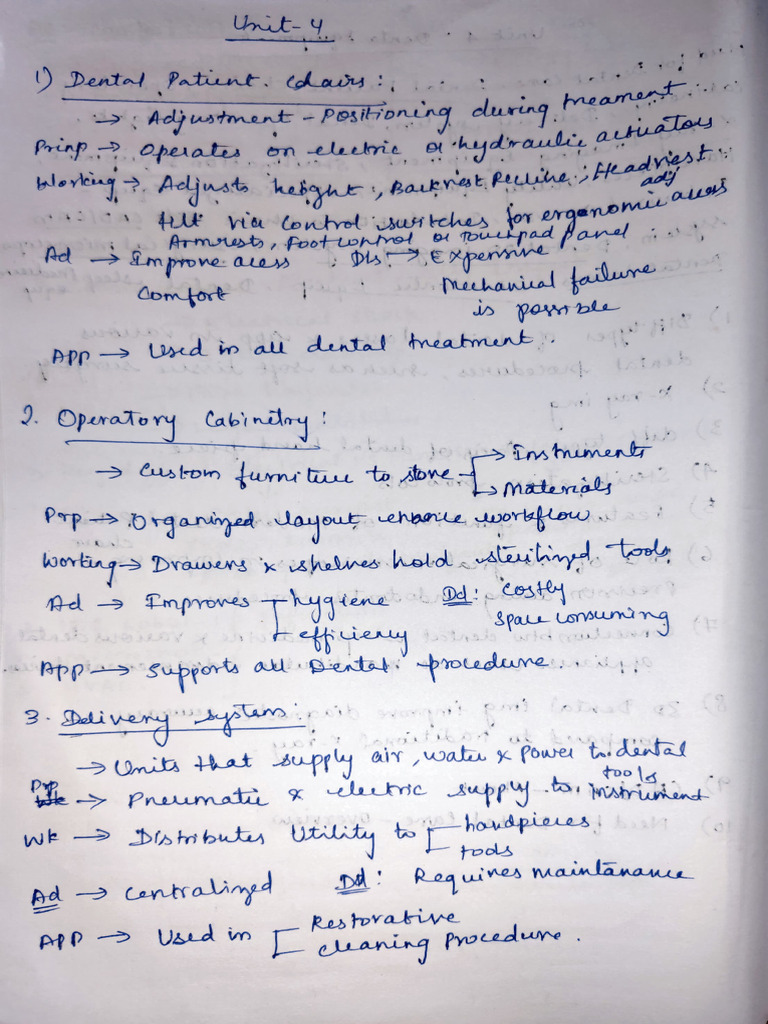 Unit-4
1) Dental Patient Chairs:
→ Adjustment - Positioning during treament
Prinp → Operates on electric or hydraulic actuators
Working → Adjusts height, Backrest Recline, Headrest adj
tilt via control switches for ergonomic acess
Armrests, Foot control or Touchpad panel
Ad → Improve acess Dis → Expensive
Comfort Mechanical failure
is possible
APP → Used in all dental treatment.
2. Operatory Cabinetry:
→ Custom furniture to store → Instruments
→ Materials
Prp → Organized layout enhance workflow
Working → Drawers & shelves hold sterilized tools
Ad → Improves hygiene Dd: costly
efficiency space consuming
App → Supports all Dental procedure.
3. Delivery system:
→ Units that supply air, water & power to dental
tools
Prp → Pneumatic & electric supply to instrument
Wk → Distributes Utility to handpieces
tools
Ad → Centralized Dd: Requires maintanance
APP → Used in Restorative
cleaning procedure.